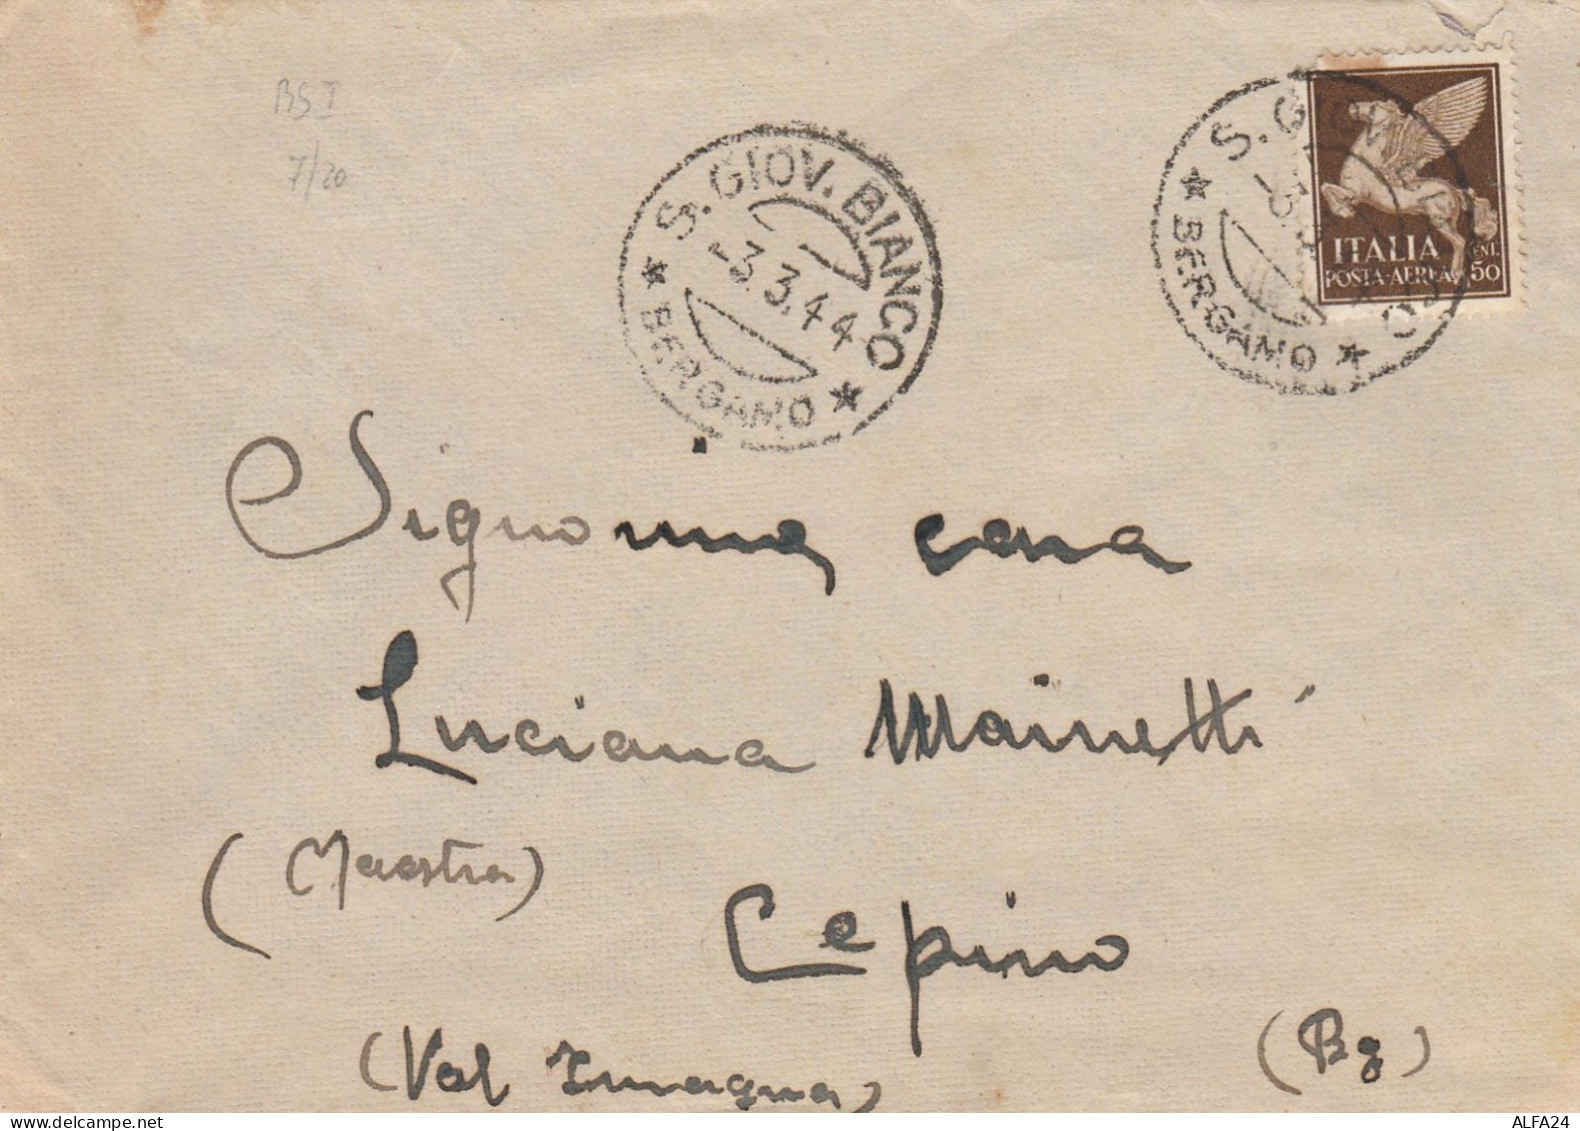 BS I
7/20
S. GIOV. BIANCO
-3.3.44
★ BERGAMO ★
S. GIOV. BIANCO
-3.3.44
★ BERGAMO ★
ITALIA
POSTA-AEREA
CNT. 50
Signorina cara
Luciana Mainetti
(Maestra)
Cepino
(Val Imagna)
(Bg)
ALFA24